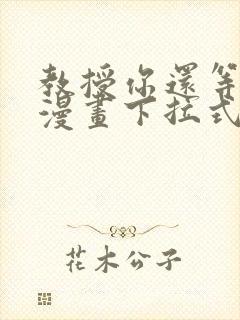 教授你還等
漫畫下拉式
花木公子